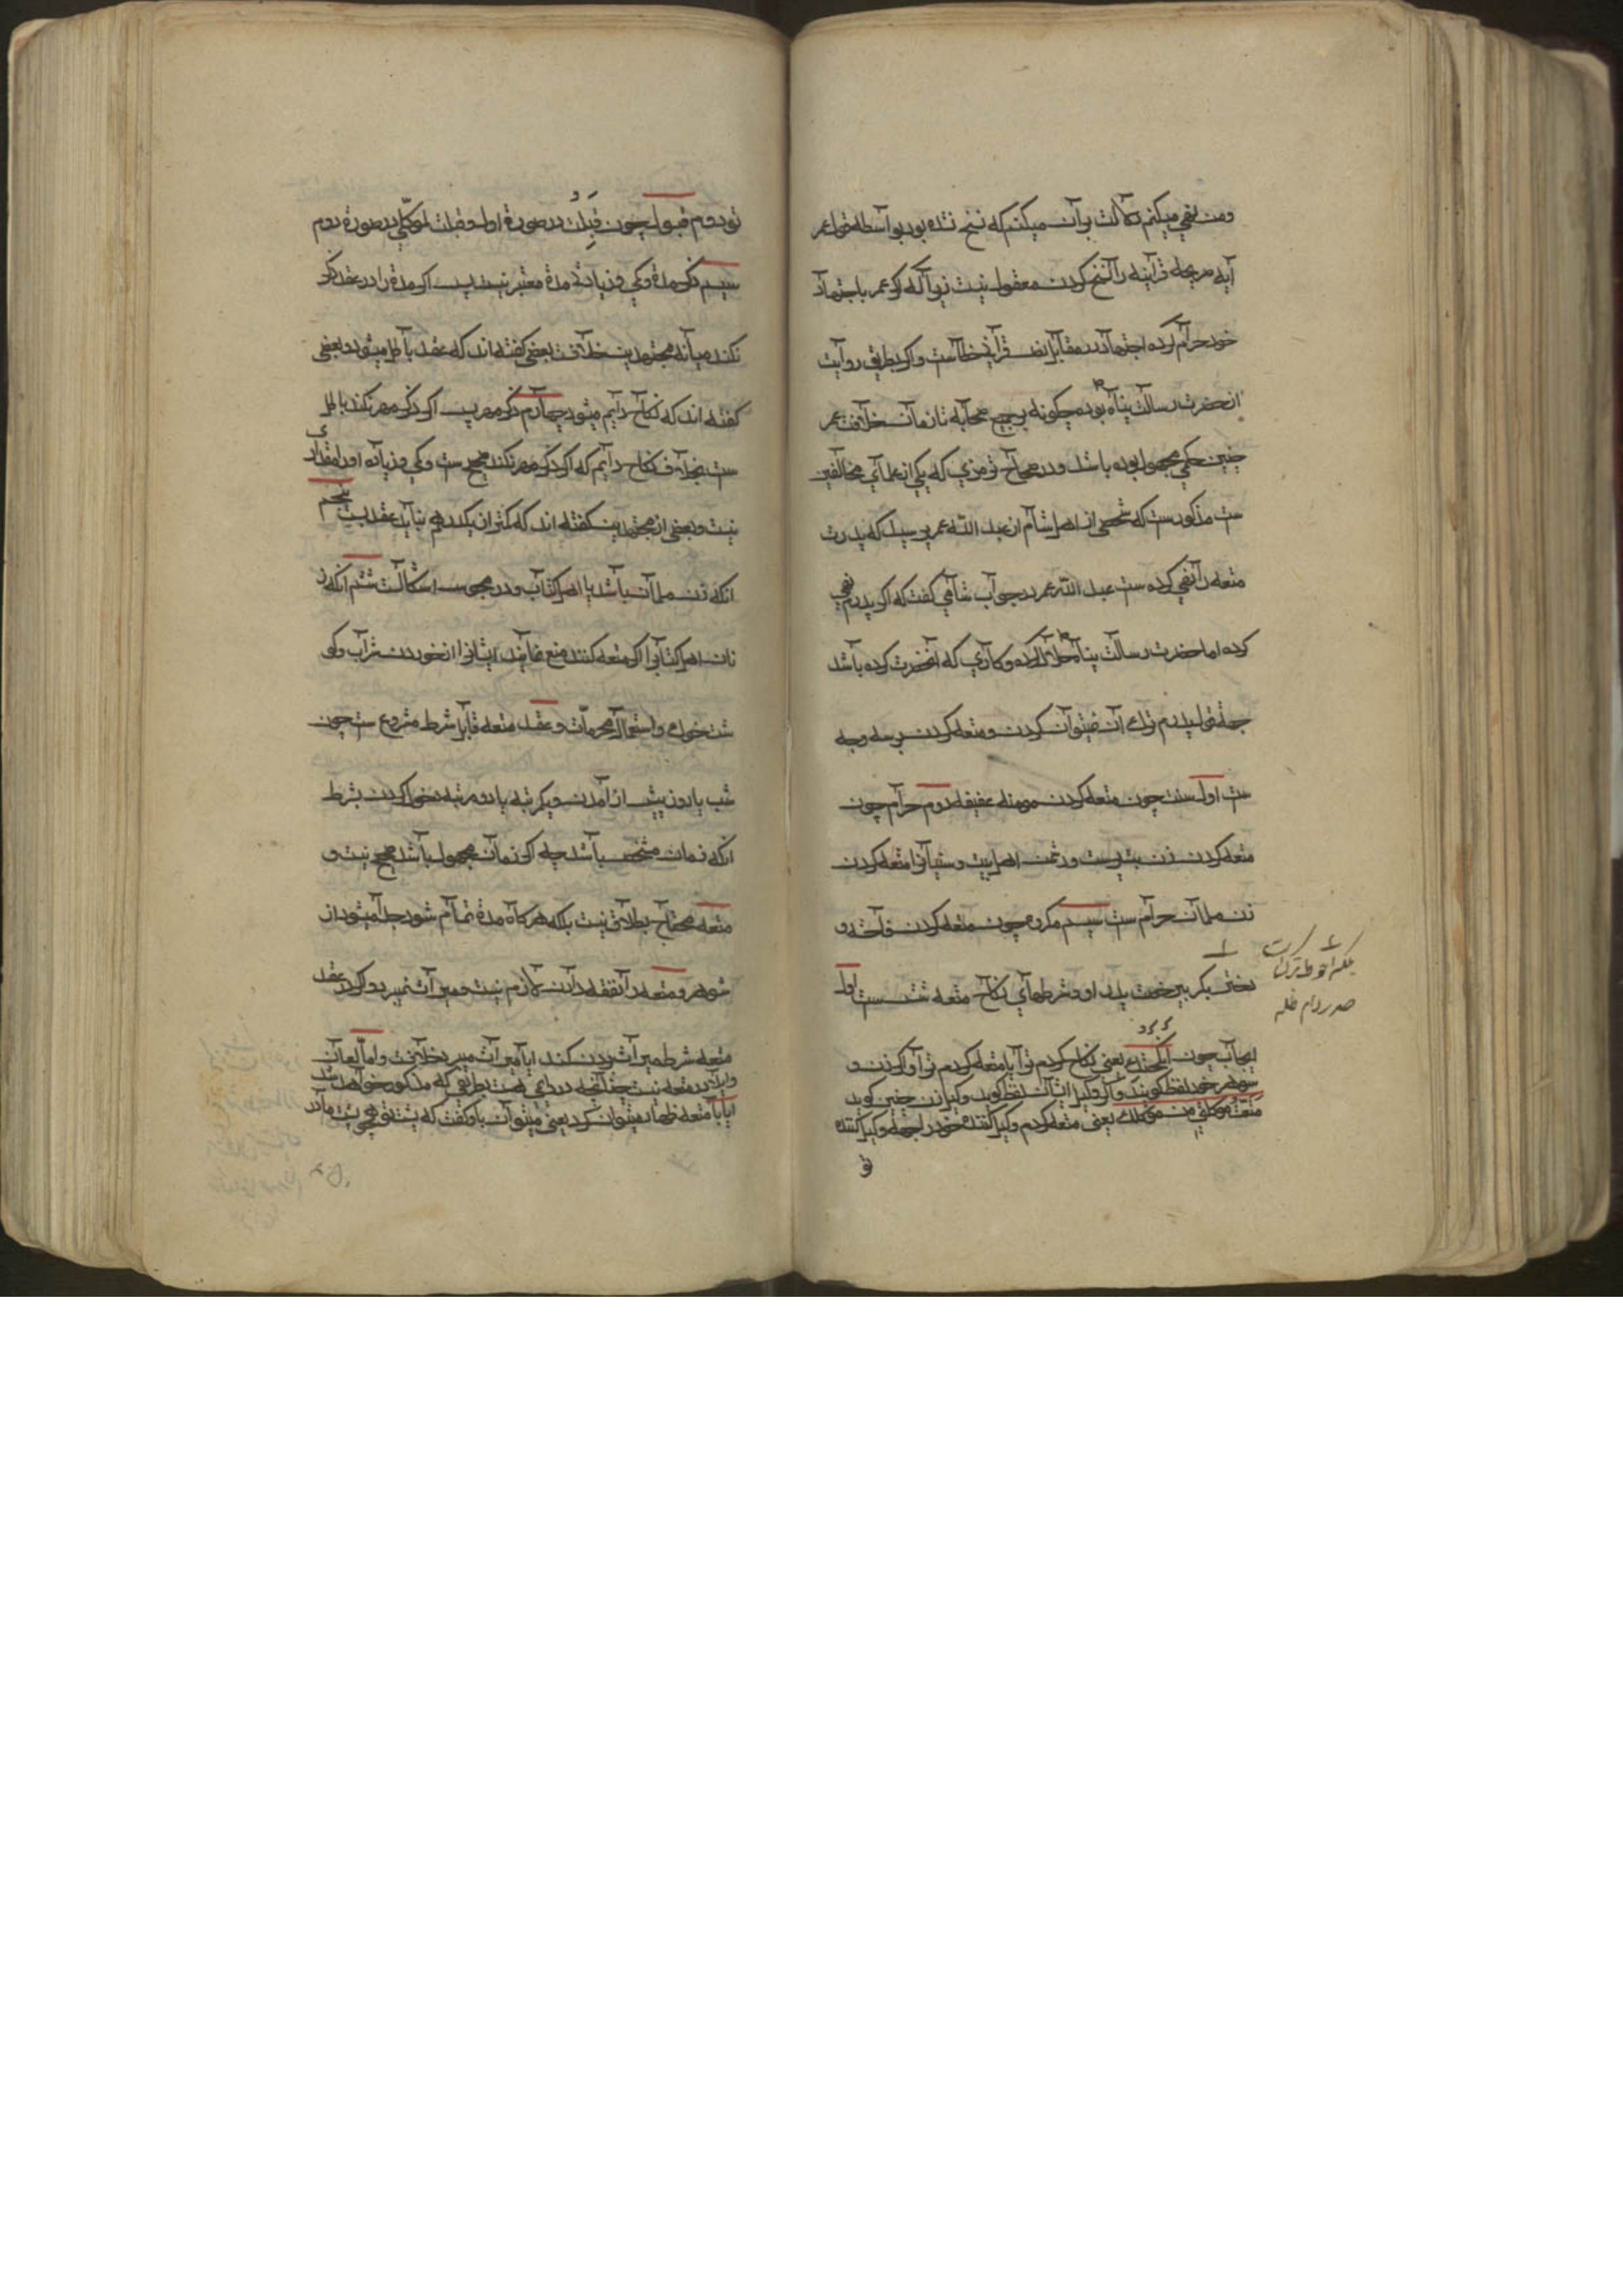 ومن نفی میکنم دلالت بر آن میکند که نسخ نشده بود بواسطه قول عمر
آیه صریحه قرآینه را نسخ کردن معقول نیست زیرا که اگر عمر باجتهاد
خود حرام کرده اجتهاد در مقابل نص قرآنی خطاست و اگر بطریق روایت
از حضرت رسالت پناه بوده چگونه بر جمیع صحابه تا زمان خلافت عمر
چنین حکمی مجهول بوده باشد و در صحاح ترمزی که یکی از علمای مخالفین
ست مذکورست که شخصی از اهل شام از عبد الله عمر پرسید که پدرت
متعه را نفی کرده ست عبد الله عمر در جواب شامی گفت که اگر پدرم نفی
کرده اما حضرت رسالت پناه حلال کرده و کاری که آنحضرت کرده باشد
جهة قول پدرم ترک آن نمیتوان کردن و متعه کردن بر سه وجه
ست اول سنت چون متعه کردن مومنه عفیفه دوم حرام چون
متعه کردن زن بت پرست و دشمن اهل بیت و سنیانرا متعه کردن
زن مسلمان حرام ست سیم مکروه چون متعه کردن فاحشه و
دختر بکر بیرخصت پدر او و شرطهای نکاح متعه شش ست اول
ایجاب چون انکحتک یعنی نکاح کردم ترا یا متعه کردم ترا و اگر زن و
شوهر خود لفظ گویند و اگر وکیل ایشان لفظ گوید وکیل زن چنین گوید
متعت موکلتی من موکلک یعنی متعه کردم وکیل کننده خود را جهة وکیل کننده
تو
بلکه احوط ترک است
صدر دام ظله
تو دوم قبول چون قبلت در صورة اول و قبلت لموکلی در صورة دوم
سیم ذکر مدة و کمی و زیادتی مدة معتبر نیست پس اگر مدة را در عقد ذکر
نکند میانه مجتهدین خلافست بعضی گفته اند که عقد باطل میشود و بعضی
گفته اند که نکاح دایم میشود چهارم ذکر مهر پس اگر ذکر مهر نکند باطل
ست بخلاف نکاح دایم که اگر ذکر مهر نکند صحیح ست و کمی و زیاده او را مقداری
نیست و بعضی از مجتهدین گفته اند که کمتر از یکدرهم نباید عقد بست پنجم
انکه زن مسلمان باشد یا اهل کتاب و در مجوس اشکالست ششم انکه ز
نان اهل کتابرا اگر متعه کنند منع نمایند ایشانرا از خوردن شراب و گو
شت خوک و استعمال محرمات و عقد متعه قابل شرط مشروع ست چون
شب یا روز پیش او آمدن و یکمرتبه یا دو مرتبه دخول کردن بشرط
انکه زمان مشخص باشد چه اگر زمان مجهول باشد صحیح نیست و
متعه محتاج بطلاق نیست بلکه هرگاه مدة تمام شود جدا میشود از
شوهر و متعه را نفقه دادن لازم نیست و میراث نمیبرد و اگر در عقد
متعه شرط میراث بردن کند ایا میراث میبرد خلافست و اما لعان
و ایلا در متعه نیست چنانچه در دایمی هست بطریقی که مذکور خواهد شد
ایا با متعه ظهار میتوان کرد یعنی میتوان باو گفت که پشت تو همچو پشت مادر